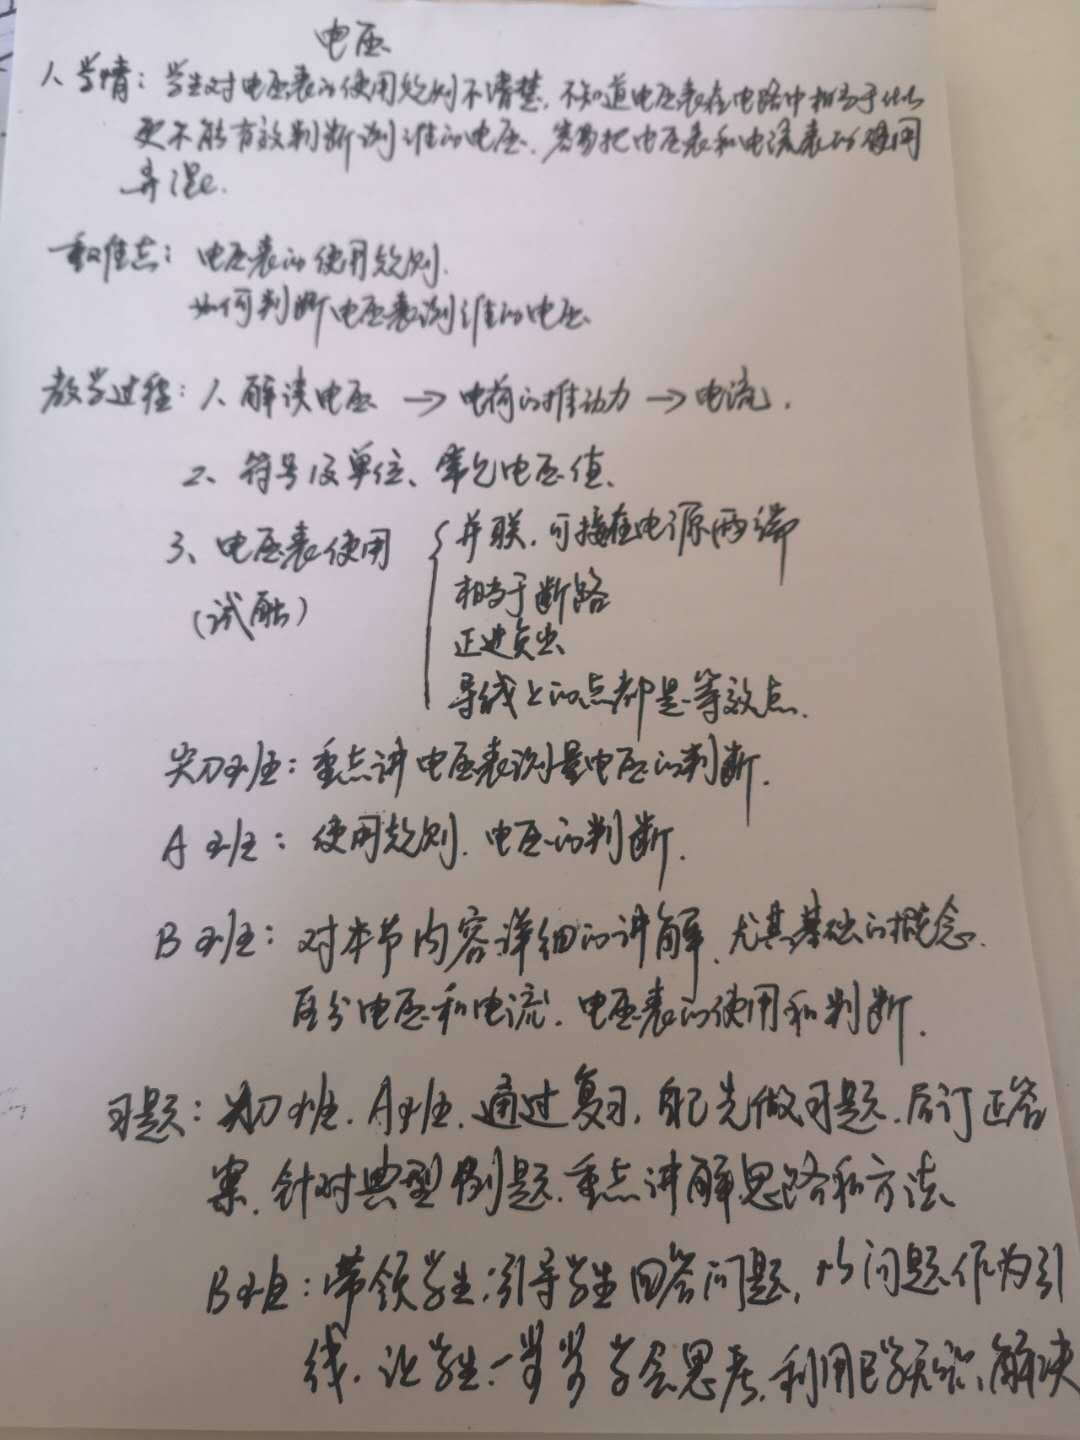 电压
1、学情：学生对电压表的使用规则不清楚，不知道电压表在电路中相当于什么
更不能有效判断测谁的电压，容易把电压表和电流表的使用
弄混.
重难点：电压表的使用规则.
如何判断电压表测谁的电压
教学过程：1、解读电压 → 电荷的推动力 → 电流.
2、符号及单位、常见电压值、
3、电压表使用 { 并联，可接在电源两端
(试触) 相当于断路
正进负出
导线上的点都是等效点.
尖刀班：重点讲电压表测量电压的判断.
A班：使用规则、电压的判断.
B班：对本节内容详细的讲解，尤其基础的概念.
区分电压和电流. 电压表的使用和判断.
习题：尖刀班、A班、通过复习，自己先做习题，后订正答
案，针对典型例题，重点讲解思路和方法、
B班：带领学生，引导学生回答问题，以问题作为引
线，让学生一步步学会思考，利用已学知识、解决